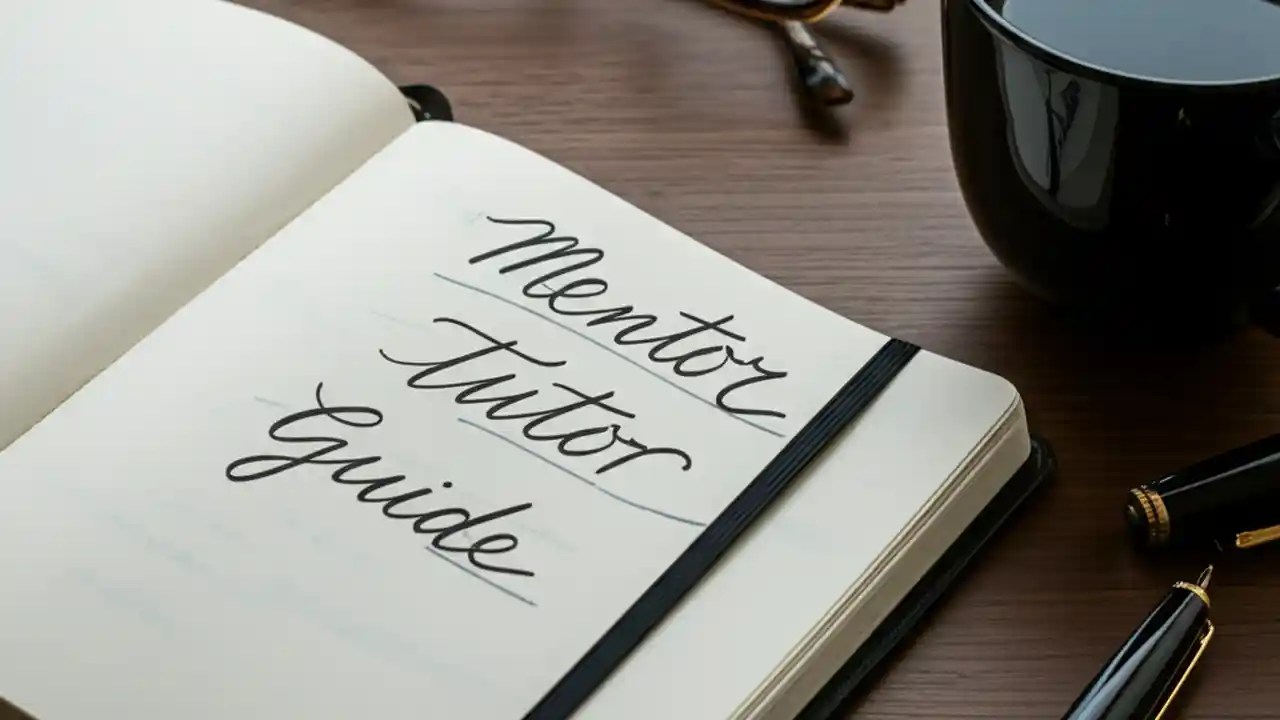 Mentor
Tutor
Guide